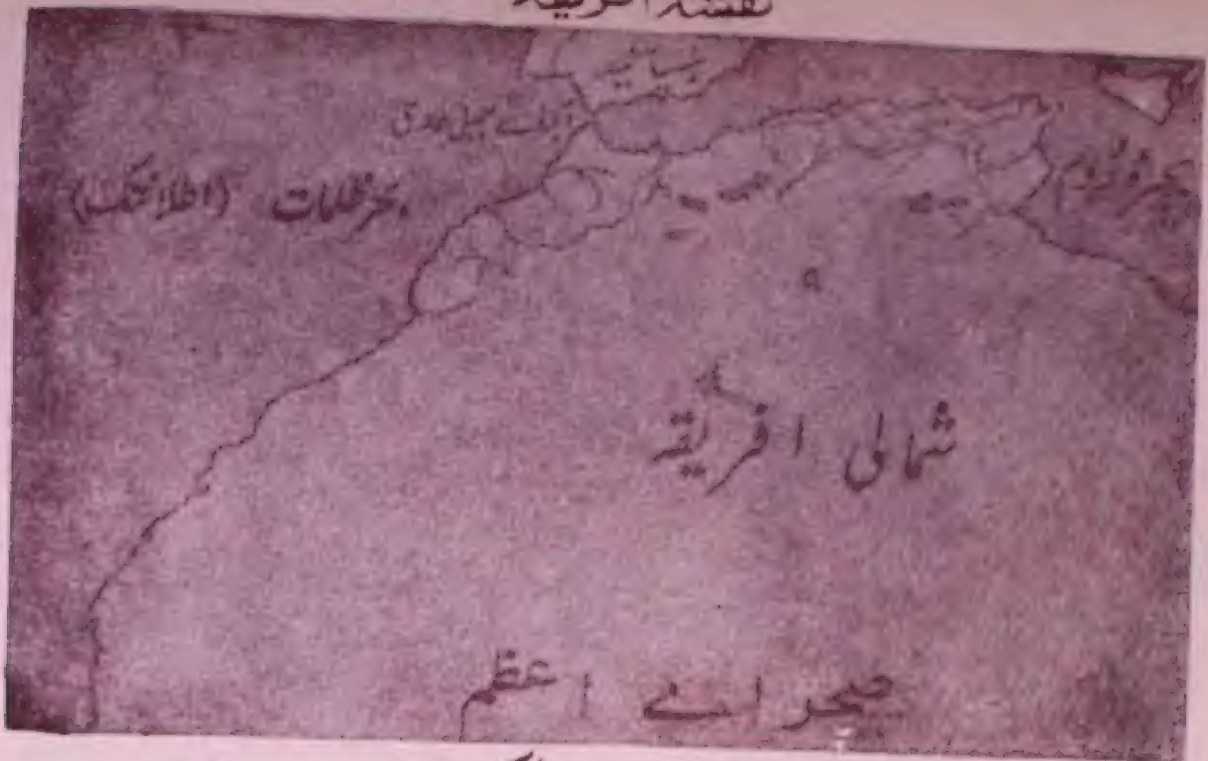 نقشہ افریقہ
ہسپانیہ
آبنائے جبل الطارق
بحر ظلمات (اطلانتک)
بحیرۂ روم
شمالی افریقہ
صحرائے اعظم